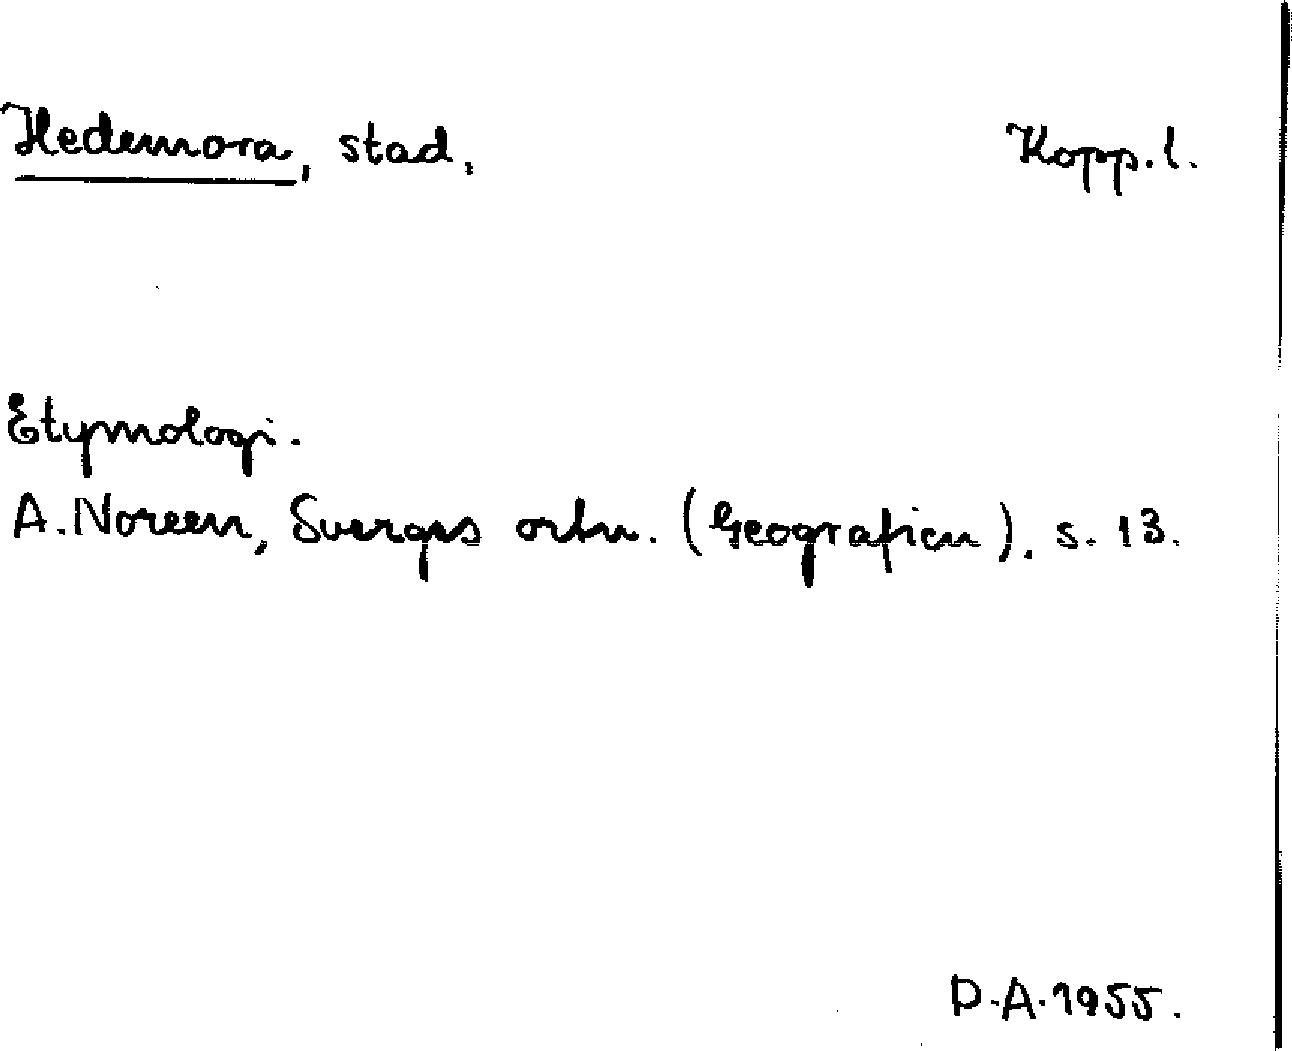 Hedemora, stad, Kopp. l.
Etymologi.
A. Noreen, Sverges ortn. (Geografien). s. 13.
D.A. 1955.